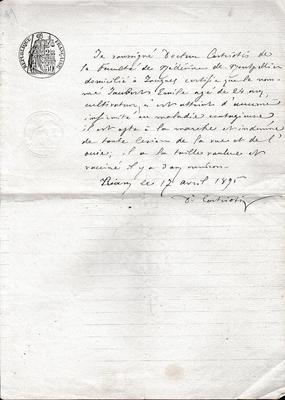 RÉPUBLIQUE FRANÇAISE
Je soussigné Docteur Castriotis de
la Faculté de Médecine de Montpellier
domicilié à certifie que le nom
mé Jaubert Emile agé de 24 ans,
cultivateur, n'est atteint d'aucune
infirmité ou maladie contagieuse
il est apte à la marche et indemne
de toute lésion de la vue et de l'
ouie; il a la taille voulue et
vacciné il y a 2 ans environ.
le 17 avril 1895
Dr Castriotis